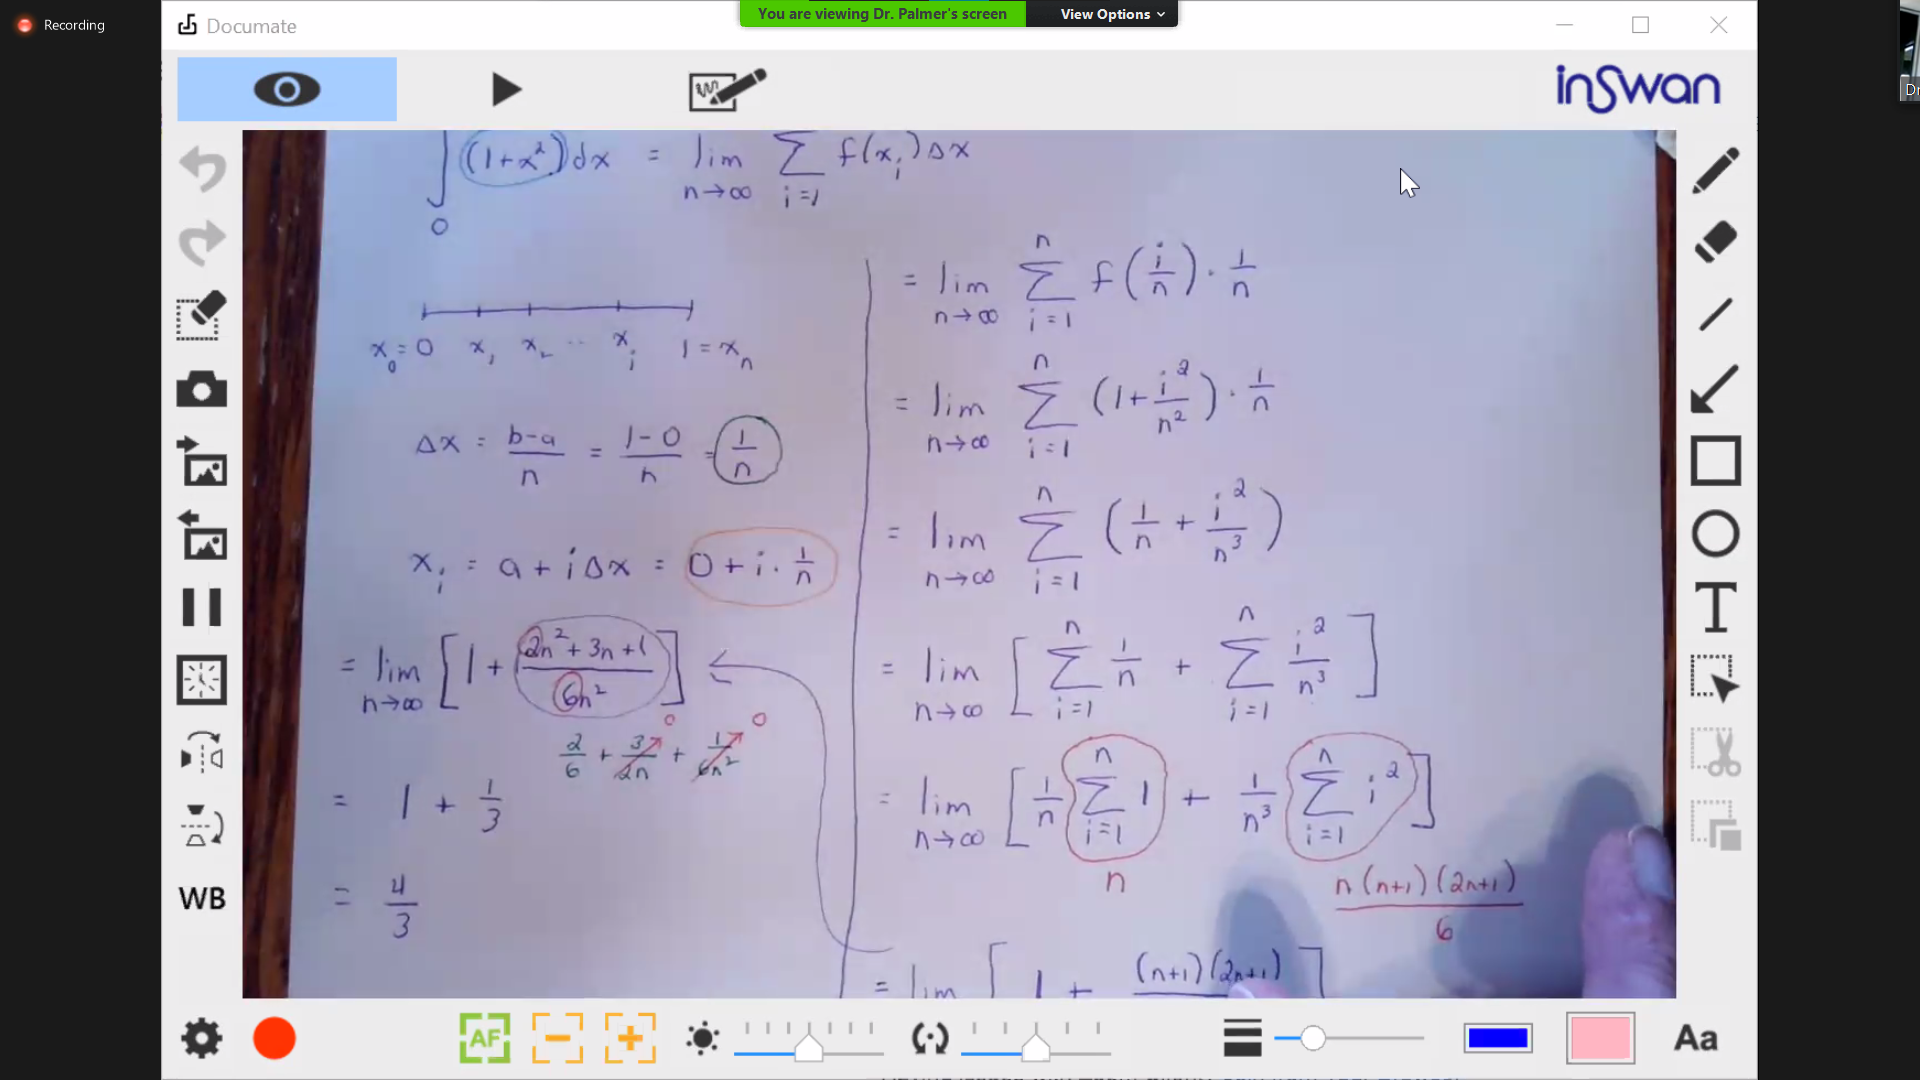 Recording
Documate
You are viewing Dr. Palmer's screen
View Options
inSwan
Dr
∫ (1+x²)dx = lim Σ f(x_i)Δx
n→∞ i=1
0
x₀=0 x₁ x₂ ... x_i 1=x_n
Δx = (b-a)/n = (1-0)/n = 1/n
x_i = a + iΔx = 0 + i · 1/n
= lim n→∞ [1 + (2n²+3n+1)/(6n²)]
2/6 + 3/2n + 1/6n²
0 0
= 1 + 1/3
= 4/3
= lim n→∞ Σ i=1 n f(i/n) · 1/n
= lim n→∞ Σ i=1 n (1+i²/n²) · 1/n
= lim n→∞ Σ i=1 n (1/n + i²/n³)
= lim n→∞ [Σ i=1 n 1/n + Σ i=1 n i²/n³]
= lim n→∞ [1/n Σ i=1 n 1 + 1/n³ Σ i=1 n i²]
n n(n+1)(2n+1)/6
= lim [1 + (n+1)(2n+1)]
WB
T
AF
Aa